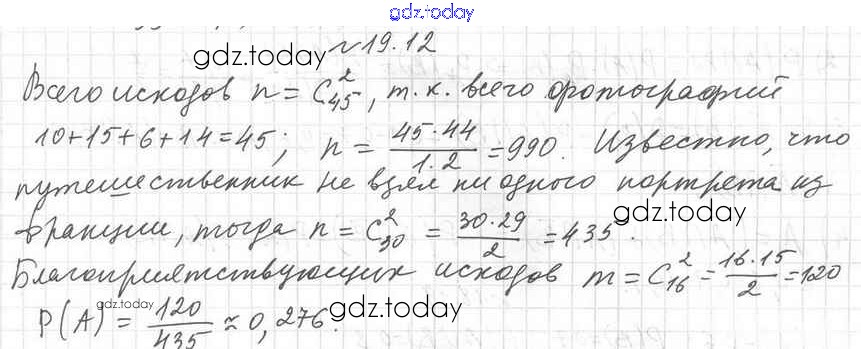 gdz.today
gdz.today №19.12
Всего исходов n = C²₄₅, т.к. всего фотографий
10+15+6+14=45; n = 45·44/1·2 = 990. Известно, что
путешественник не взял ни одного портрета из
gdz.today
Франции, тогда n = C²₃₀ = 30·29/2 = 435.
Благоприятствующих исходов m = C²₁₆ = 16·15/2 = 120
gdz.today gdz.today
P(A) = 120/435 ≈ 0,276.